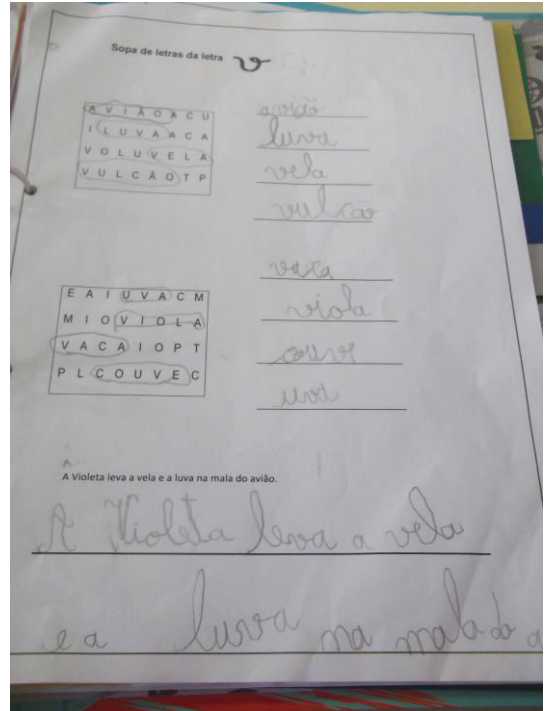 Sopa de letras da letra v
A V I Ã O A C U
I L U V A A C A
V O L U V E L A
V U L C Ã O T P
avião
luva
vela
vulcão
E A I U V A C M
M I O V I O L A
V A C A I O P T
P L C O U V E C
vaca
viola
couve
uva
A Violeta leva a vela e a luva na mala do avião.
A Violeta leva a vela
e a luva na mala do a